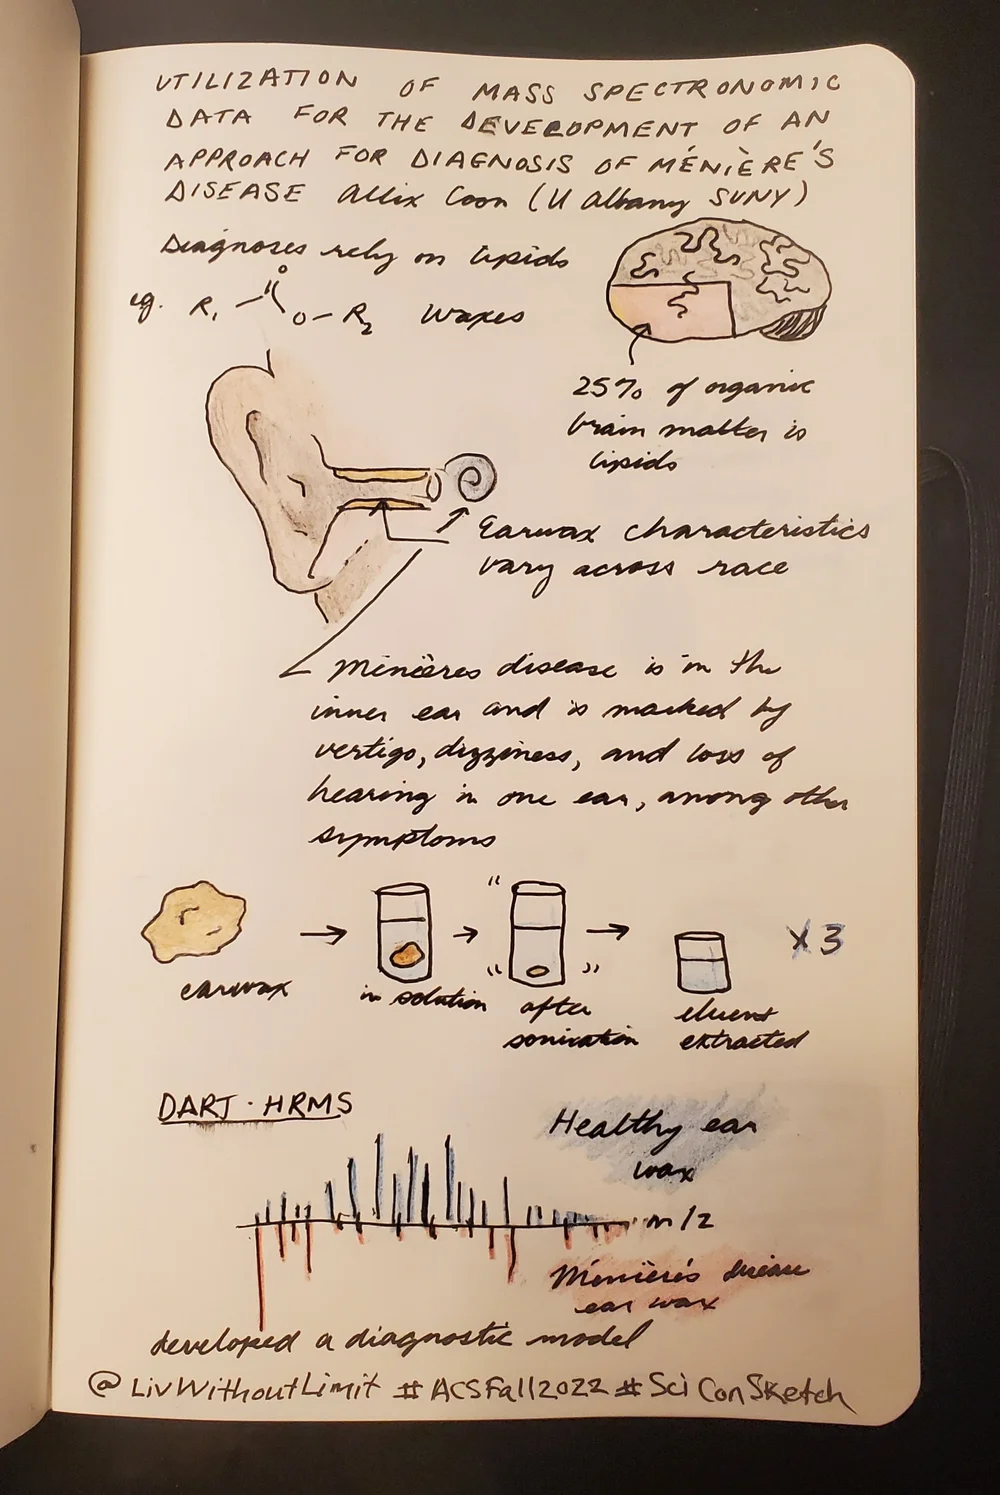 UTILIZATION OF MASS SPECTRONOMIC
DATA FOR THE DEVELOPMENT OF AN
APPROACH FOR DIAGNOSIS OF MÉNIÈRE'S
DISEASE Allix Coon (U Albany SUNY)
Diagnoses rely on lipids
eg. R1 O O-R2 waxes
25% of organic
brain matter is
lipids
Earwax characteristics
vary across race
Menières disease is in the
inner ear and is marked by
vertigo, dizziness, and loss of
hearing in one ear, among other
symptoms
x3
earwax
in solution
after
sonication
eluent
extracted
DART-HRMS
Healthy ear
wax
m/z
Ménière's disease
ear wax
developed a diagnostic model
@LivWithoutLimit #ACSFall2022 #SciConSketch